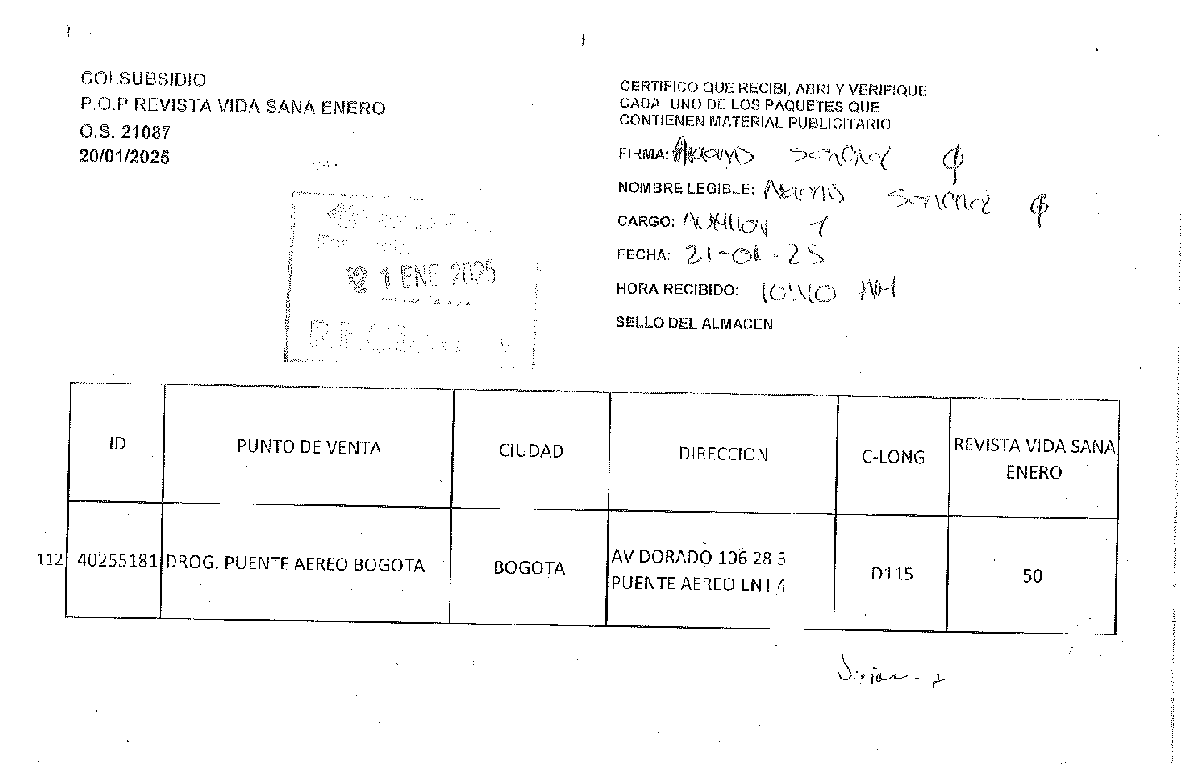 COLSUBSIDIO
P.O.P REVISTA VIDA SANA ENERO
O.S. 21087
20/01/2025
CERTIFICO QUE RECIBI, ABRI Y VERIFIQUE
CADA UNO DE LOS PAQUETES QUE
CONTIENEN MATERIAL PUBLICITARIO
FIRMA:
NOMBRE LEGIBLE:
CARGO:
FECHA: 21-01-25
HORA RECIBIDO: 10:40 AM
SELLO DEL ALMACEN
21 ENE 2025
ID PUNTO DE VENTA CIUDAD DIRECCION C-LONG REVISTA VIDA SANA
ENERO
112 40255181 DROG. PUENTE AEREO BOGOTA BOGOTA AV DORADO 106 28 D115 50
PUENTE AEREO